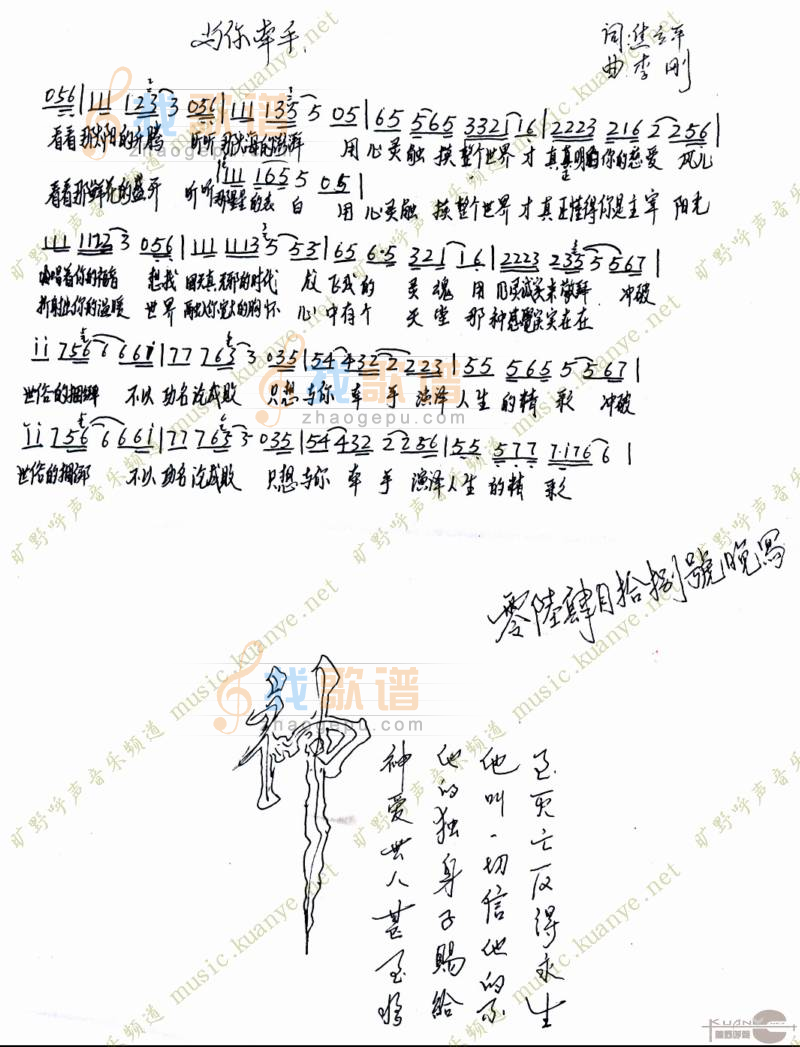 与你牵手
词:焦立平
曲 李刚
056 | 111 1233 056 | 111 1355 05 | 65 565 332116 | 2223 216 2 256 |
看看那太阳的升腾 听听那大海的澎湃 用心灵触摸整个世界才真真明白你的慈爱 风儿
111 1655 05 |
看看那鲜花的盛开 听听那星星的表白 用心灵触摸整个世界才真正懂得你是主宰 阳光
111 11223 056 | 111 11135 5 535 | 65 6·5 321 16 | 2223 2355 5567 |
吟唱着你的福音 想我回天真无邪的时代 放飞我的灵魂 用 来敬拜 冲破
折射出你的温暖 世界融入你宽大的胸怀 心中有个天堂 那种感觉实实在在
ii7566 66i | 777633 035 | 544322 223 | 55 565 5 567 |
世俗的捆绑 不以功名论成败 只想与你牵手 演泽人生的精彩 冲破
ii7566 66i | 777653 035 | 544322 256 | 55 577 7·1766 |
世俗的捆绑 不以功名论成败 只想与你牵手 演泽人生的精彩
零陸肆月拾捌號晚写
神
神爱世人甚至将
他的独身子賜給
他叫一切信他的不
至灭亡反得永生
找歌谱
zhaogepu.com
旷野呼声音乐频道 music.kuanye.net
KUANYE
旷野呼声